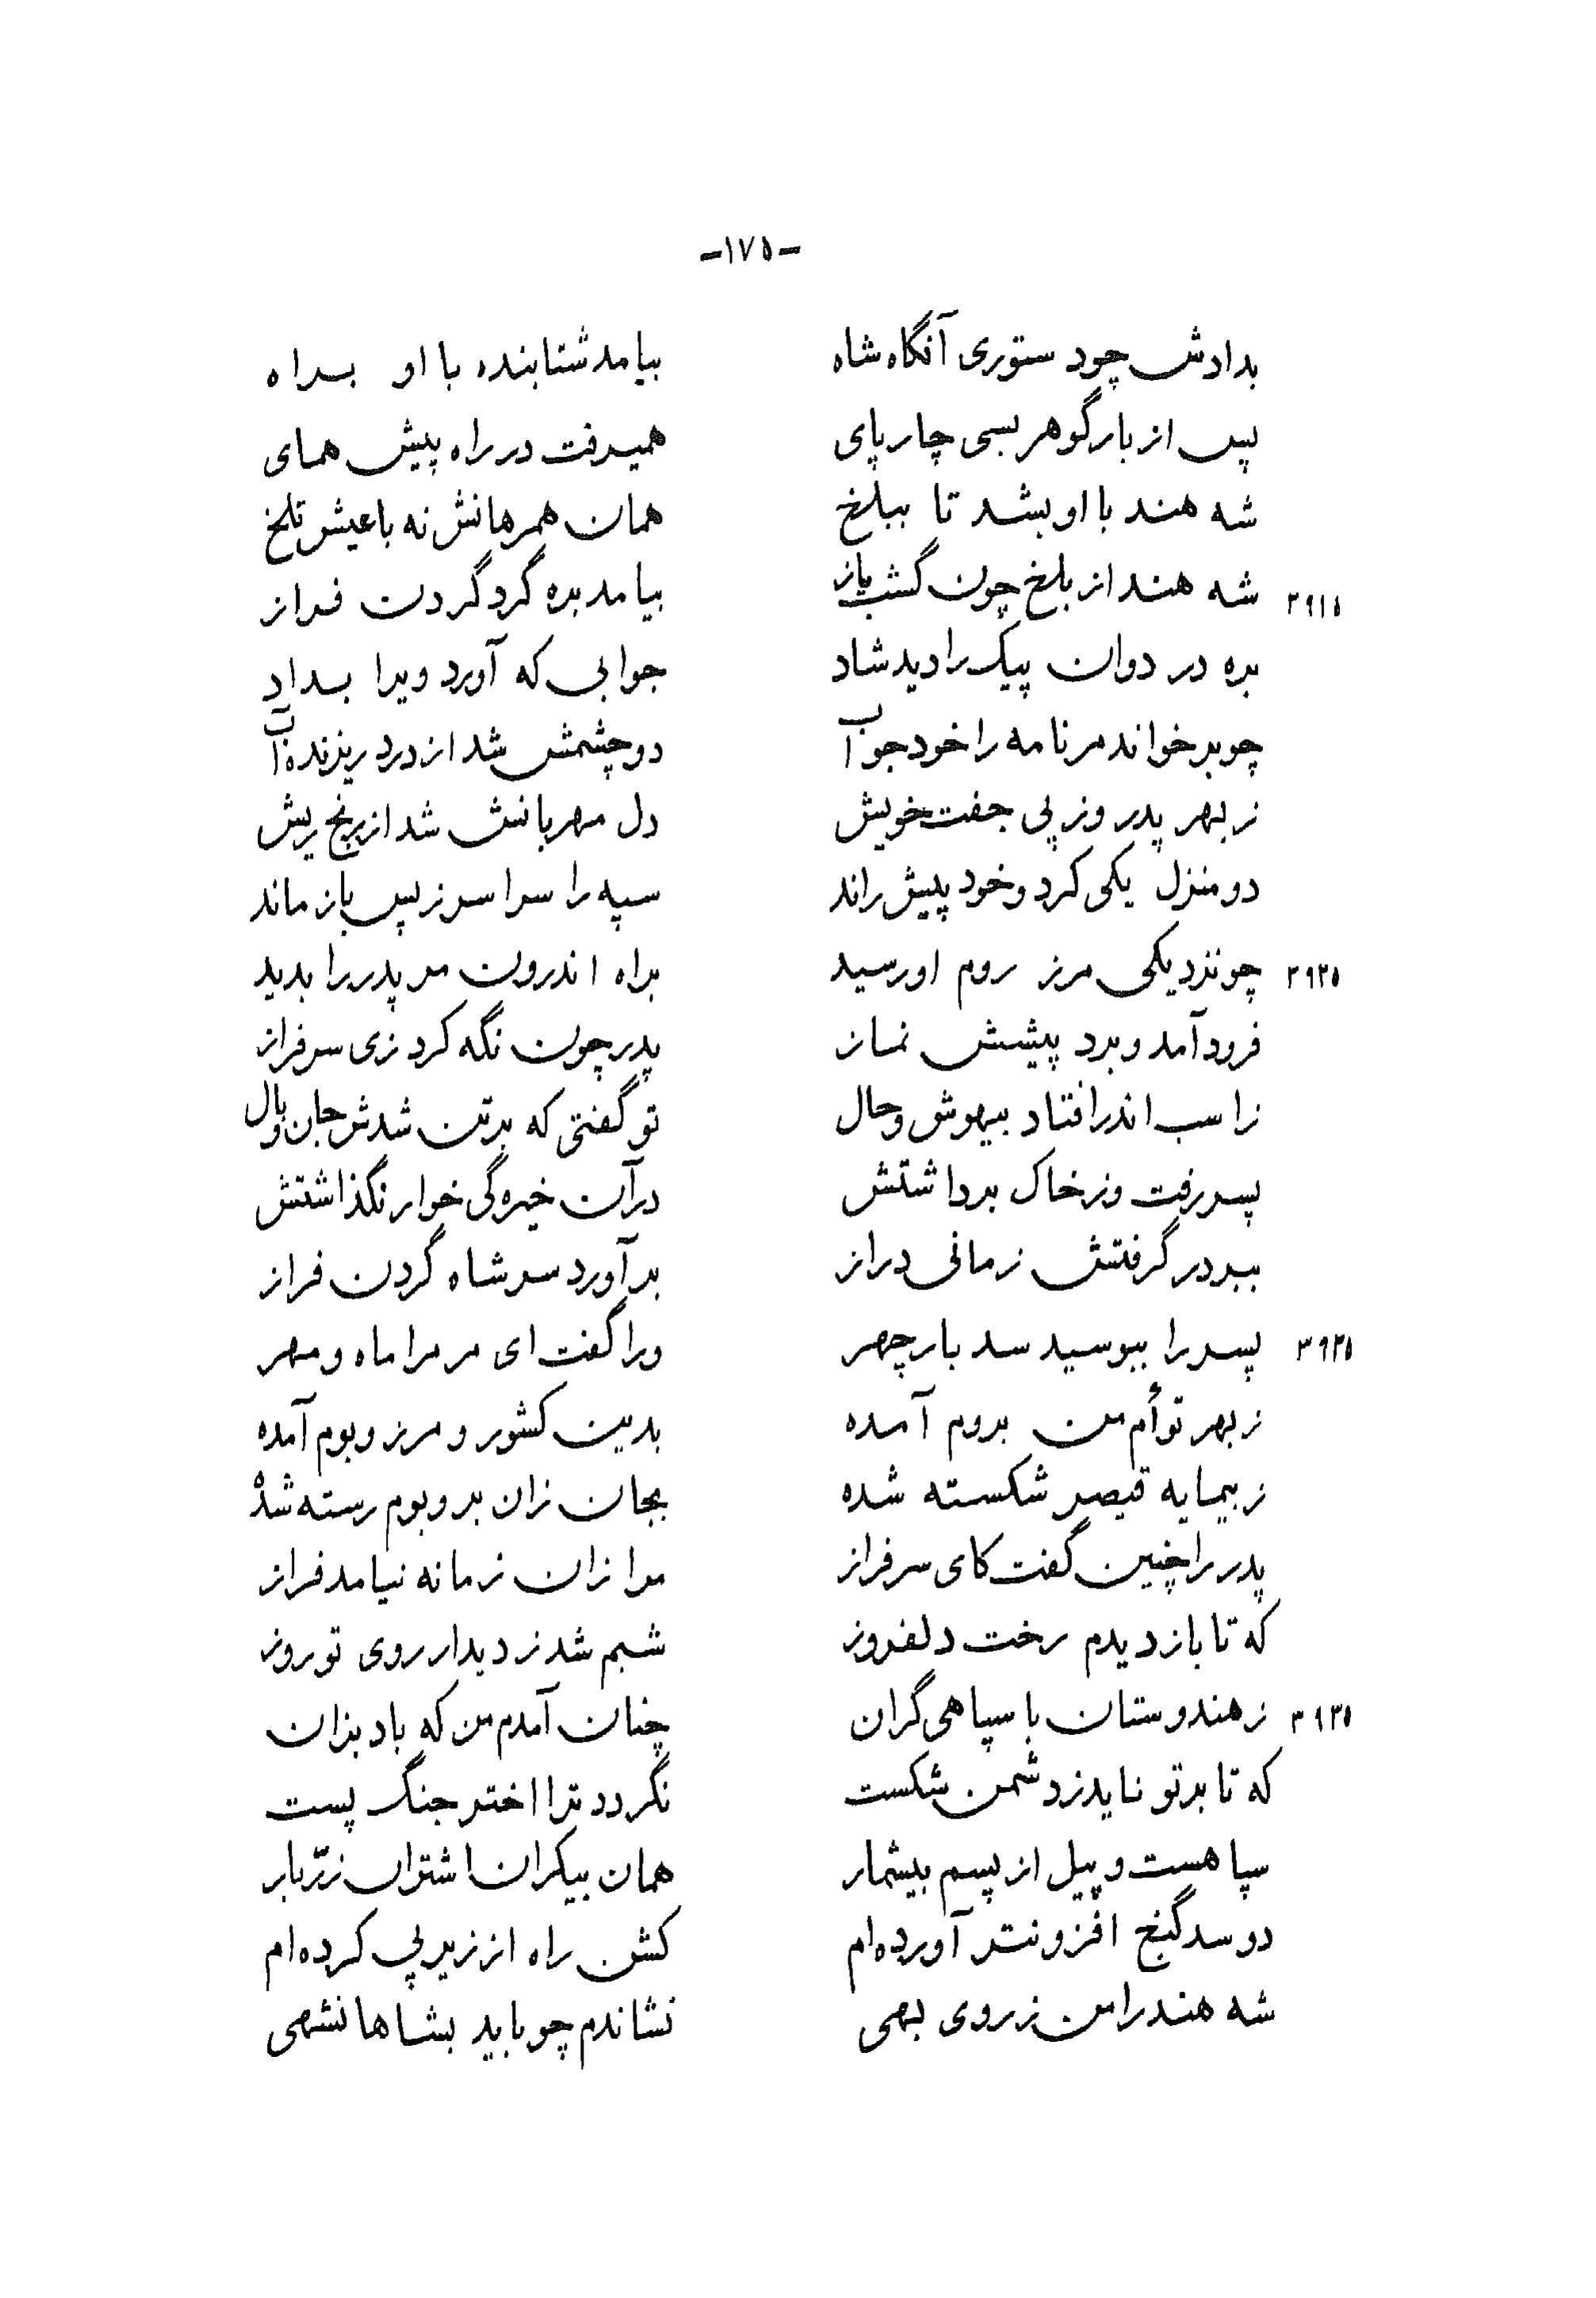 -۱۷۵-
بدادش چود ستوری آنگاه شاه بیامد شتابنده با او براه
پس از بار گوهر بسی چارپای همیرفت در راه پیش همای
شه هند با او بشد تا ببلخ همان همرهانش نه با عیش تلخ
۲۹۱۵ شه هند از بلخ چون گشت باز بیامد بره گرد گردن فراز
بره در دوان پیک را دید شاد جوابی که آورد ویرا بداد
چو برخواند مر نامه را خود جواب دو چشمش شد از درد ریزنده آب
ز بهر پدر وز پی جفت خویش دل مهربانش شد از رنج ریش
دو منزل یکی کرد و خود پیش راند سپه را سراسر ز پس باز ماند
۲۹۲۵ چو نزدیکی مرز روم او رسید براه اندرون مر پدر را بدید
فرود آمد و برد پیشش نماز پدر چون نگه کرد زی سرفراز
ز اسب اندر افتاد بیهوش و حال تو گفتی که بر تن شدش جان وبال
پسر رفت وز خاک برداشتش در آن خیره‌گی خوار نگذاشتش
ببر در گرفتش زمانی دراز برآورد سر شاه گردن فراز
۳۹۲۵ پسر را ببوسید سد بار چهر ورا گفت ای مر مرا ماه و مهر
ز بهر توأم من بروم آمده بدین کشور و مرز و بوم آمده
ز بیمایه قیصر شکسته شده بجان زان بر و بوم رسته شده
پدر را چنین گفت کای سرفراز مرا زان زمانه نیامد فراز
که تا باز دیدم رخت دلفروز شبم شد ز دیدار روی تو روز
۳۹۳۵ ز هندوستان با سپاهی گران چنان آمدم من که باد بزان
که تا بر تو ناید ز دشمن شکست نگردد ترا اختر جنگ پست
سپاهست و پیل از پسم بیشمار همان بیکران اشتران زرّبار
دو سد گنج افزونتر آورده‌ام کشن راه از زیر پی کرده‌ام
شه هند را من ز روی بهی نشاندم چو باید بشاهانشهی